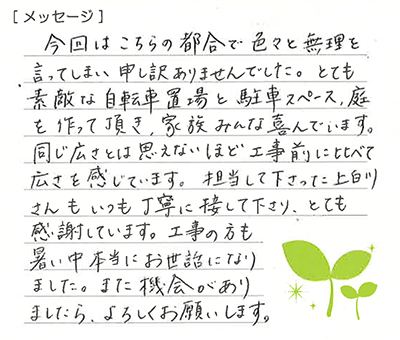 [メッセージ]
今回はこちらの都合で色々と無理を
言ってしまい申し訳ありませんでした。とても
素敵な自転車置場と駐車スペース,庭
を作って頂き,家族みんな喜んでいます。
同じ広さとは思えないほど工事前に比べて
広さを感じています。担当して下さった上臼リ
さんもいつも丁寧に接して下さり、とても
感謝しています。工事の方も
暑い中本当にお世話になり
ました。また機会があり
ましたら、よろしくお願いします。